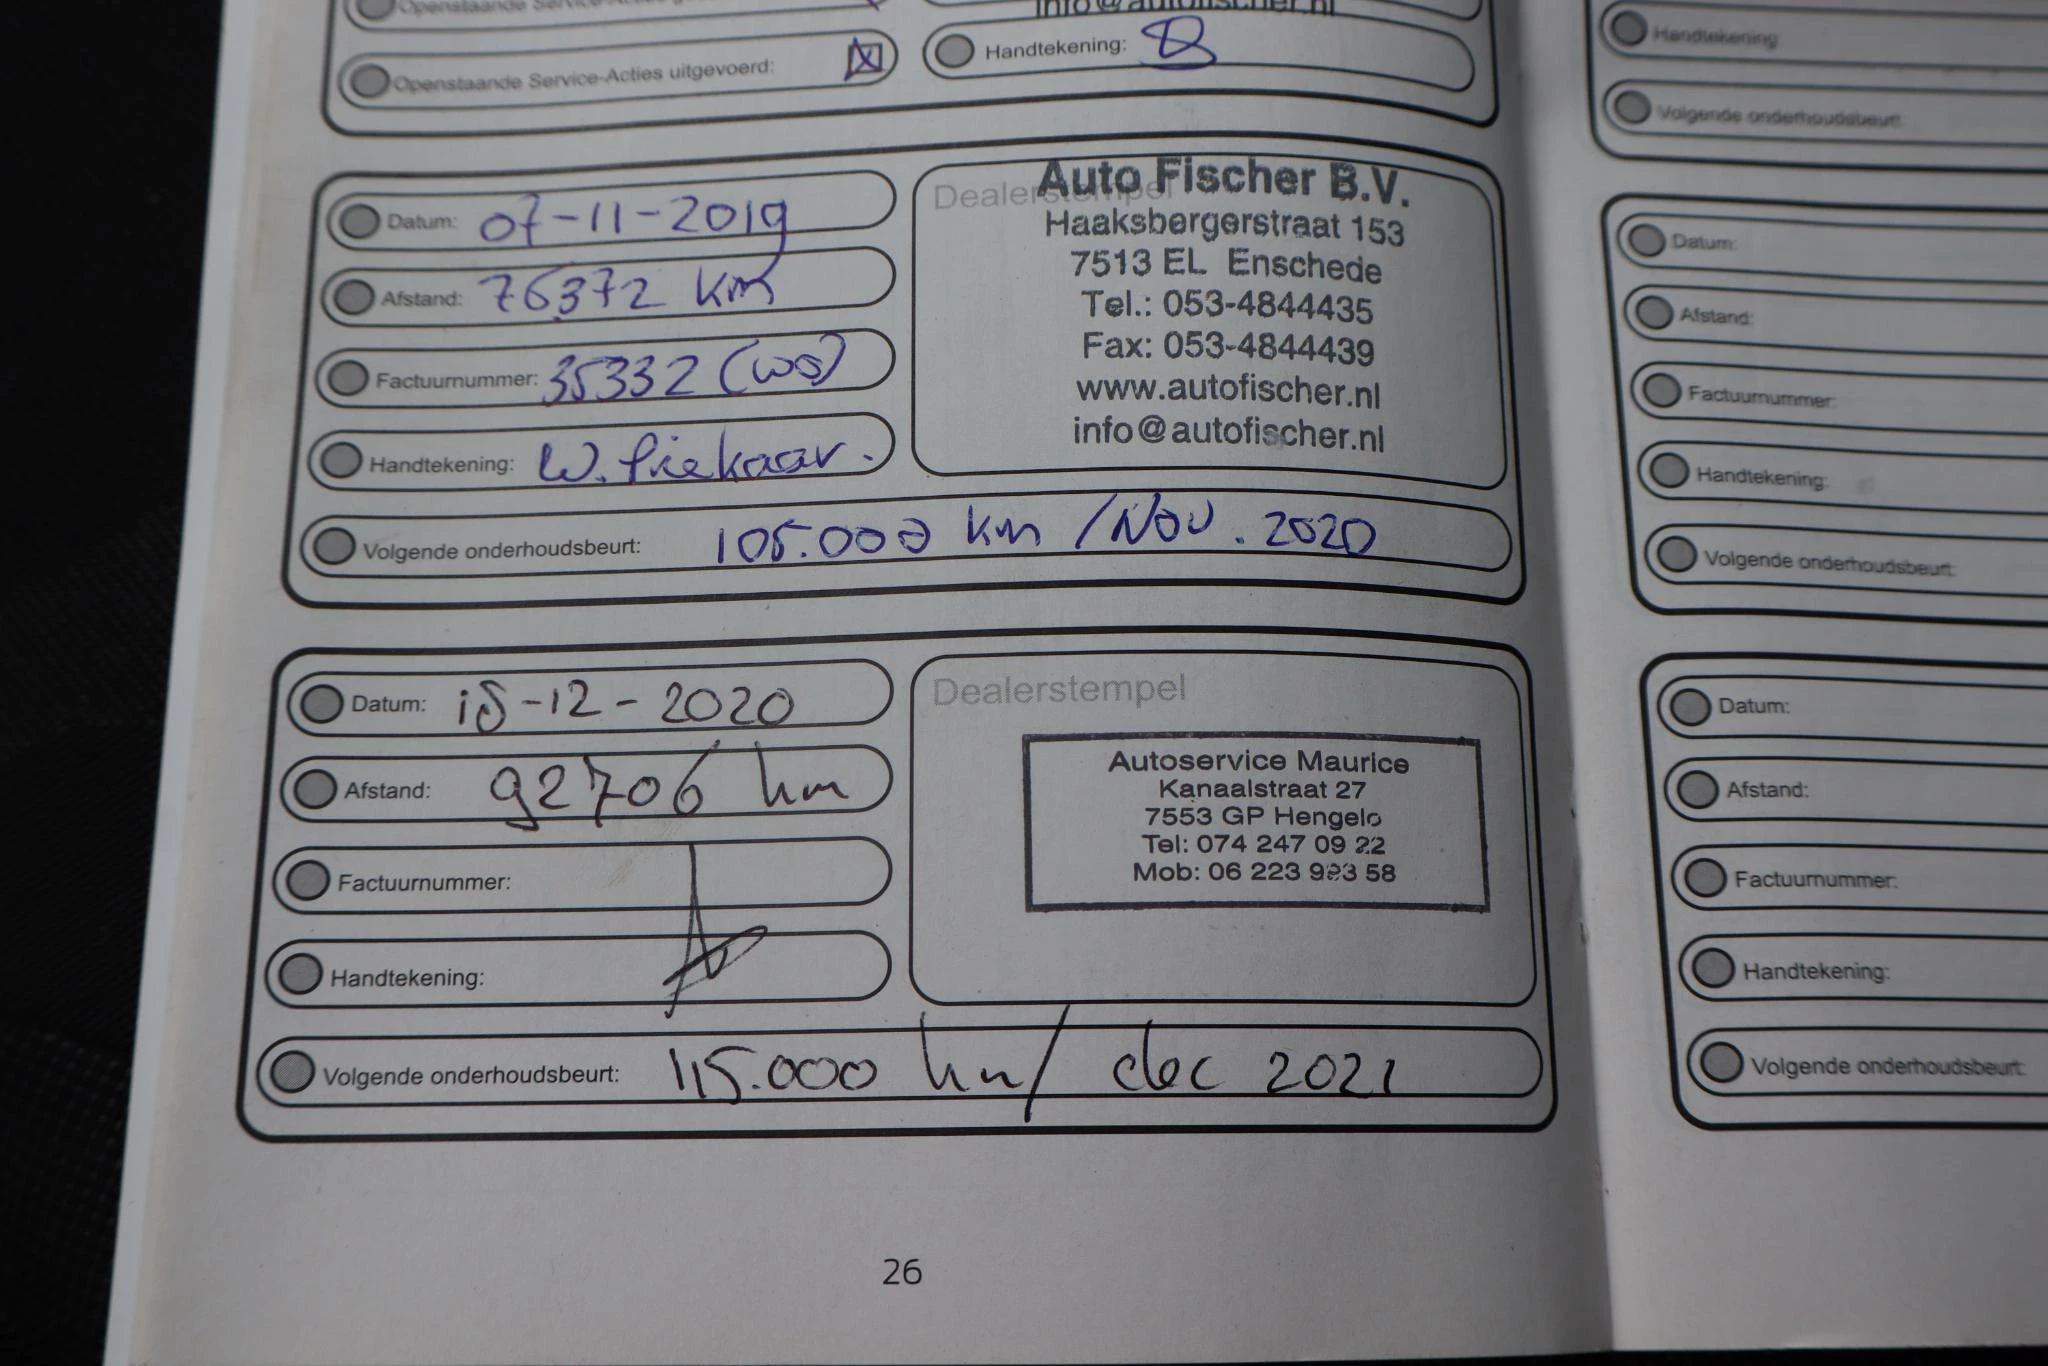 Openstaande Service-Acties
info@autofischer.nl
Openstaande Service-Acties uitgevoerd: X
Handtekening:
Datum: 07-11-2019
Afstand: 76372 km
Factuurnummer: 35332 (WO)
Handtekening: W. Piekaar.
Volgende onderhoudsbeurt: 105.000 km / Nov. 2020
Dealerstempel
Auto Fischer B.V.
Haaksbergerstraat 153
7513 EL Enschede
Tel.: 053-4844435
Fax: 053-4844439
www.autofischer.nl
info@autofischer.nl
Datum: 18-12-2020
Afstand: 92706 km
Factuurnummer:
Handtekening:
Volgende onderhoudsbeurt: 115.000 km / dec 2021
Dealerstempel
Autoservice Maurice
Kanaalstraat 27
7553 GP Hengelo
Tel: 074 247 09 22
Mob: 06 223 993 58
26
Handtekening:
Volgende onderhoudsbeurt:
Datum:
Afstand:
Factuurnummer:
Handtekening:
Volgende onderhoudsbeurt:
Datum:
Afstand:
Factuurnummer:
Handtekening:
Volgende onderhoudsbeurt: